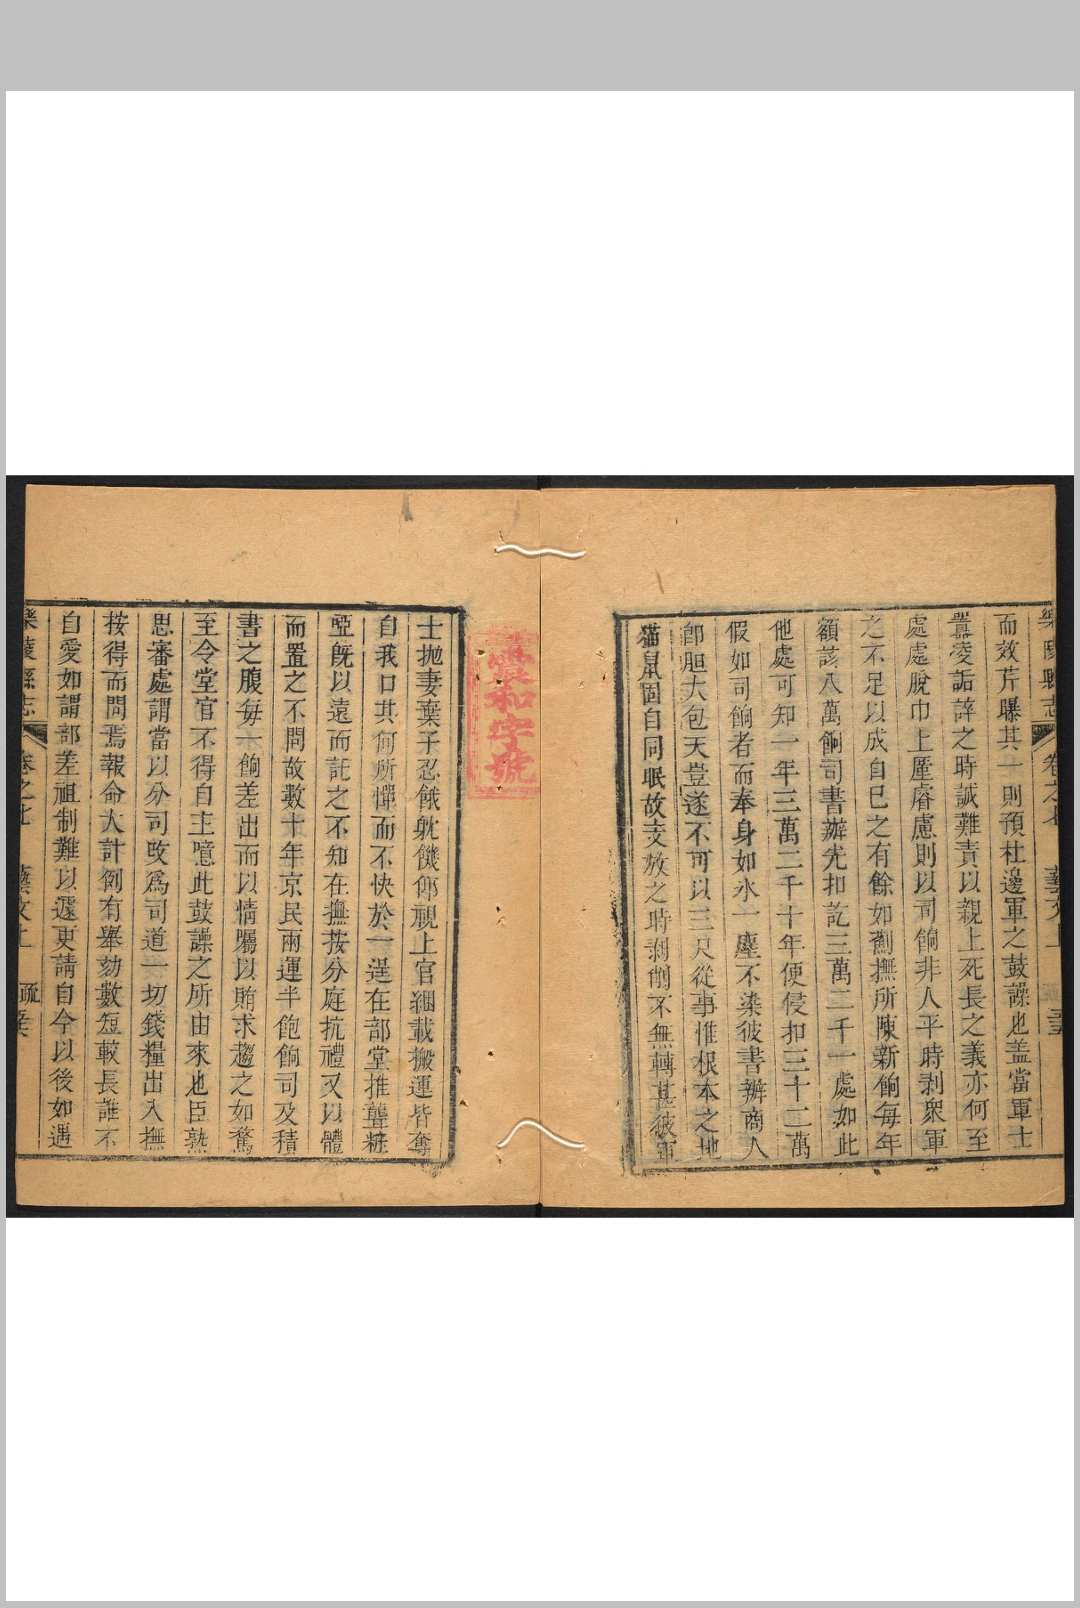 樂陵縣志 卷之七 藝文上
而效芹曝其一則預杜邊軍之鼓譟也盖當軍士
囂凌詬誶之時誠難責以親上死長之義亦何至
處處脫巾上厪睿慮則以司餉非人平時剥衆軍
之不足以成自巳之有餘如薊撫所陳新餉每年
額該八萬餉司書辦先扣訖三萬二千一處如此
他處可知一年三萬二千十年便侵扣三十二萬
假如司餉者而奉身如氷一塵不染彼書辦商人
卽胆大包天豈遂不可以三尺從事惟根本之地
猫鼠固自同眠故支放之時剥削不無轉甚彼軍
士抛妻棄子忍餓躭饑仰視上官綑載搬運皆奪
自我口其何所憚而不快於一逞在部堂推聾粧
啞旣以遠而託之不知在撫按分庭抗禮又以體
而置之不問故數十年京民兩運半飽餉司及積
書之腹每一餉差出而以情囑以賄求趨之如騖
至令堂官不得自主噫此鼓譟之所由來也臣熟
思審處謂當以分司改爲司道一切錢糧出入撫
按得而問焉報命大計例有舉劾數短較長誰不
自愛如謂部差祖制難以遽更請自今以後如遇
樂陵縣志 卷之七 藝文上 疏